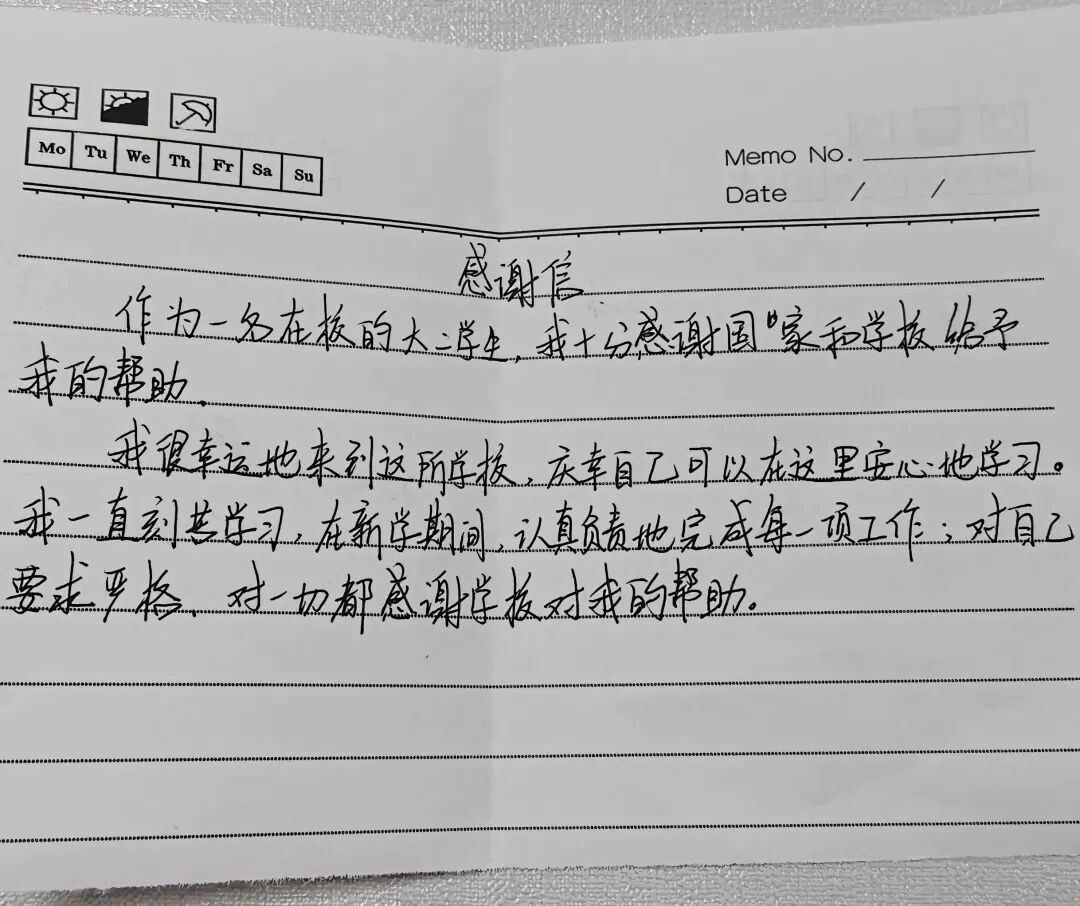 Mo Tu We Th Fr Sa Su
Memo No.
Date / /
感谢信
作为一名在校的大二学生,我十分感谢国"家和学校给予
我的帮助.
我很幸运地来到这所学校,庆幸自己可以在这里安心地学习。
我一直刻苦学习,在新学期间,认真负责地完成每一项工作;对自己
要求严格、对一切都感谢学校对我的帮助。